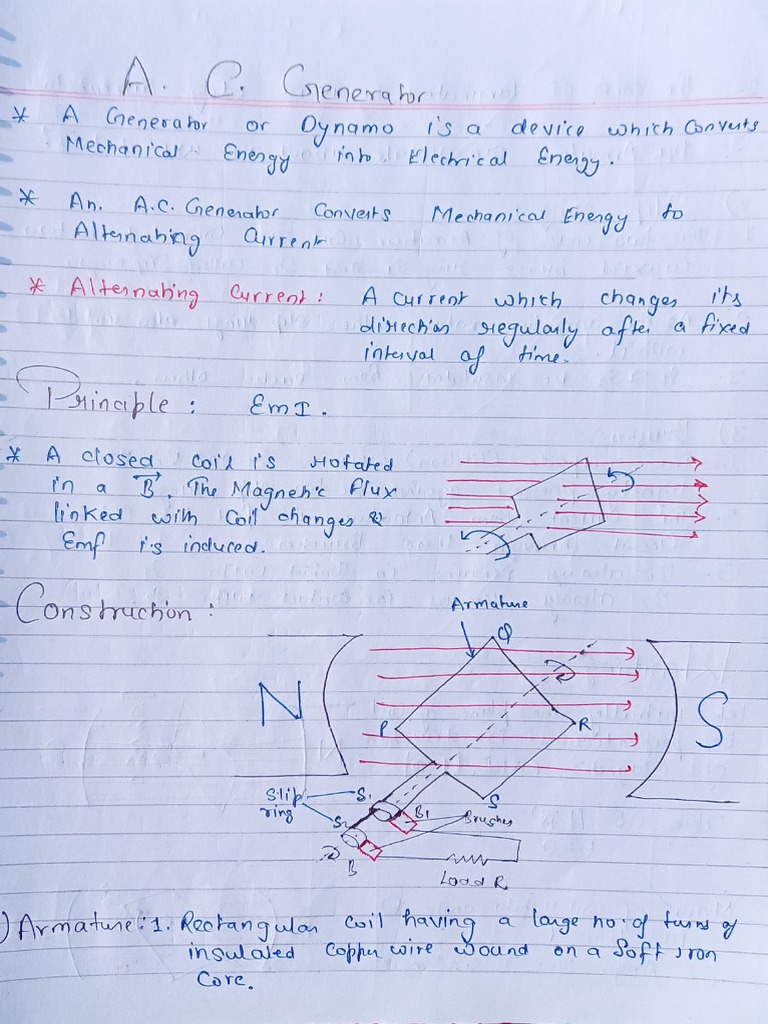 A. C. Generator
* A Generator or Dynamo is a device which Converts
Mechanical Energy into Electrical Energy.
* An. A.C. Generator Converts Mechanical Energy to
Alternating Current
* Alternating Current: A current which changes its
direction regularly after a fixed
interval of time.
Principle: EmI.
* A closed coil is rotated
in a B. The Magnetic flux
linked with coil changes &
Emf is induced.
Construction:
Armature
Q
N
S
P
R
S
Slip
ring
S1
S2
B1
Brushes
B
Load R
) Armature: 1. Rectangular coil having a large no. of turns of
insulated copper wire wound on a Soft iron
Core.